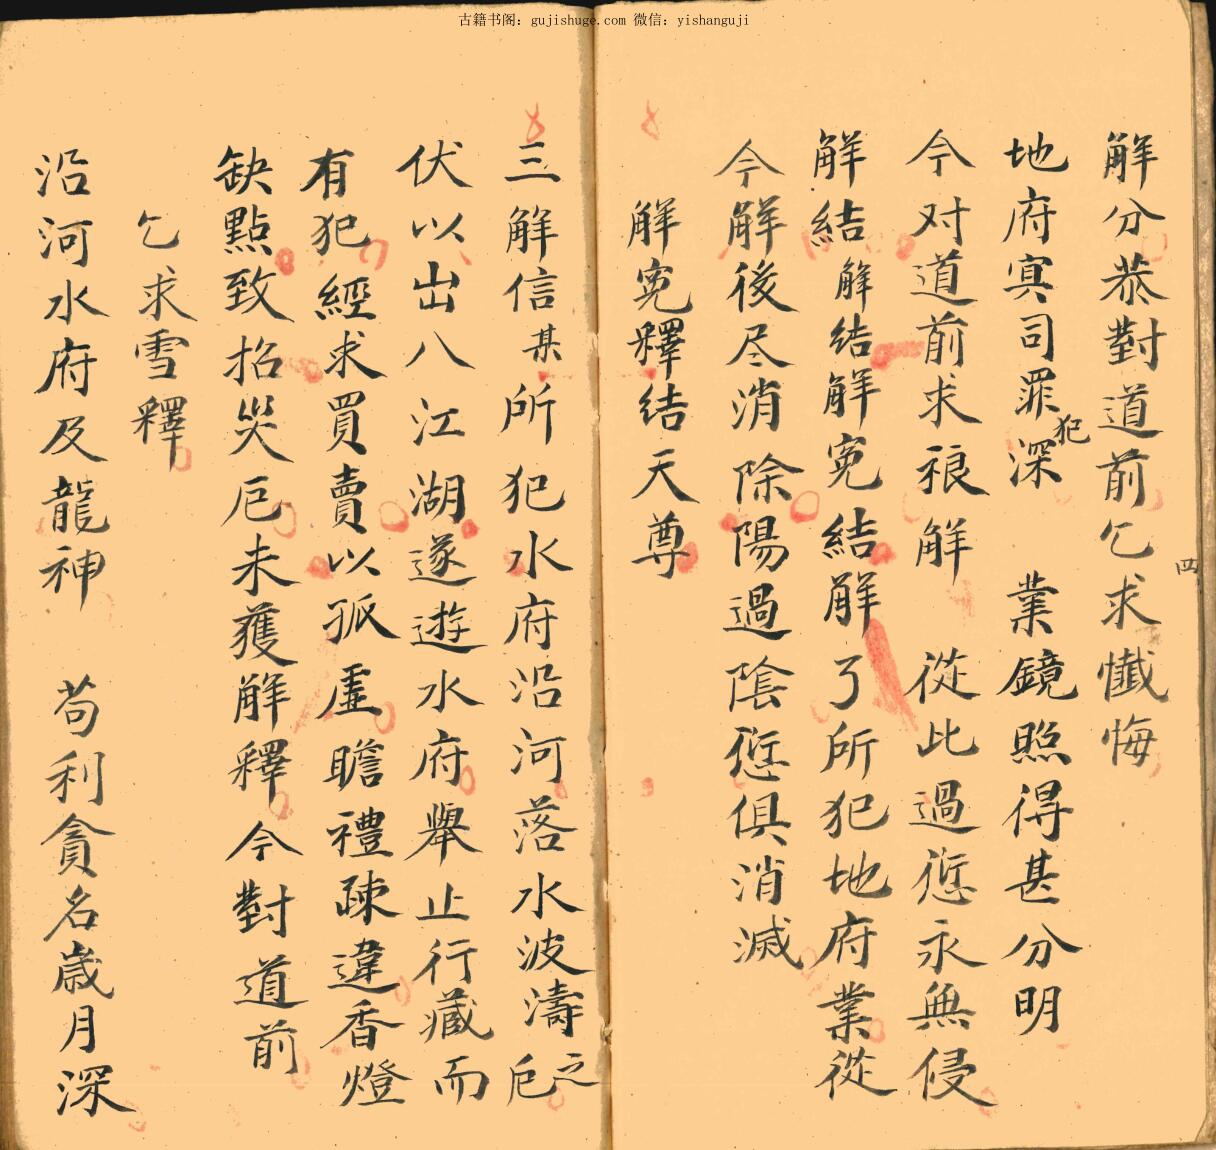 古籍书阁：gujishuge.com 微信：yishanguji
解分恭對道前乞求懺悔
四
地府㝠司罪犯深　業鏡照得甚分明
今对道前求䄛解　從此過愆永無侵
解結解結解寃結解了所犯地府業從
今解後尽消除陽過陰愆俱消滅
解寃釋结天尊
三解信某所犯水府沿河落水波濤之厄
伏以出八江湖遂遊水府舉止行藏而
有犯經求買賣以孤虛瞻禮疎違香燈
缺點致招灾厄未獲解釋今對道前
乞求雪釋
沿河水府及龍神　苟利貪名歲月深